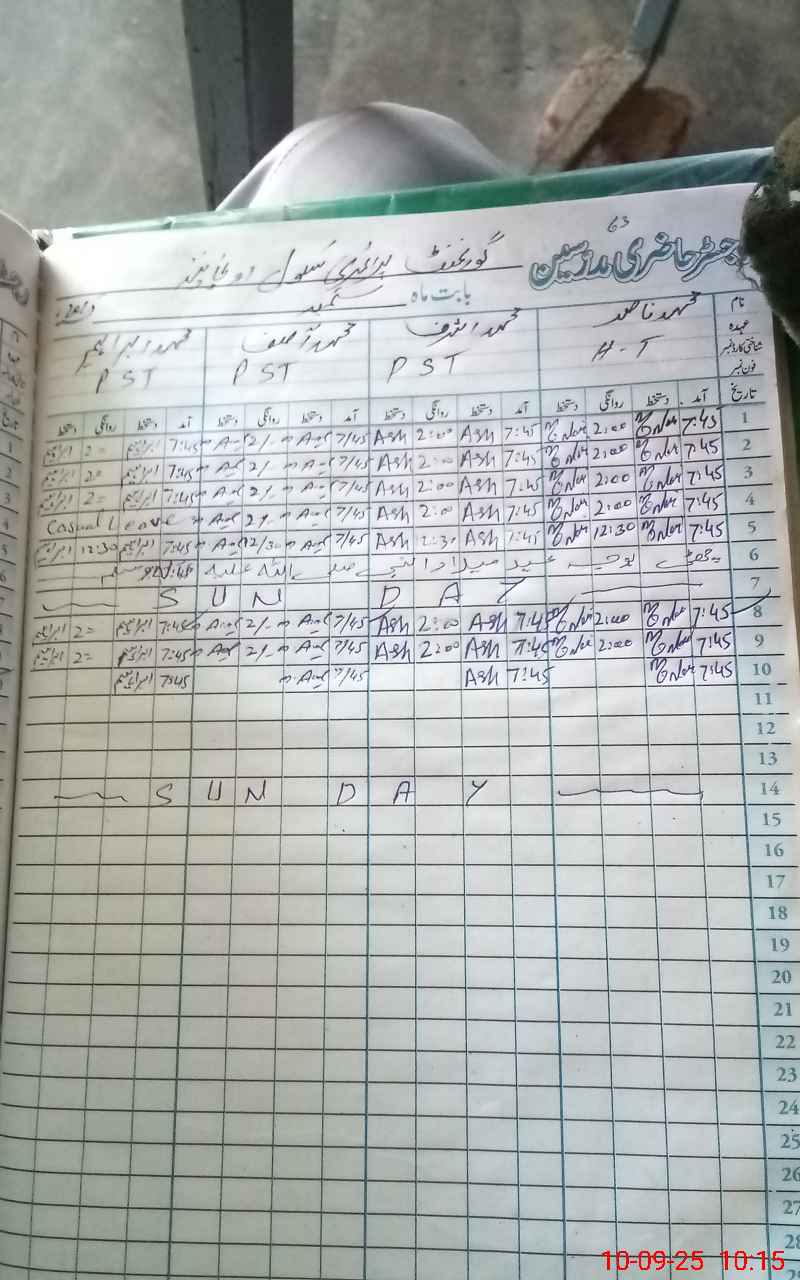 63
رجسٹر حاضری مدرسین گورنمنٹ پرائمری سکول
بابت ماہ ستمبر 2025ء
نام محمد ناصر محمد اشرف محمد آصف محمد ابراہیم
عہدہ H-T PST PST PST
شناختی کارڈ نمبر
فون نمبر
تاریخ آمد دستخط روانگی دستخط آمد دستخط روانگی دستخط آمد دستخط روانگی دستخط آمد دستخط روانگی دستخط
1 7:45 2:00 7:45 Ash 2:00 Ash 7/45 2/- 7:45 ابراہیم 2= ابراہیم
2 7:45 2:00 7:45 Ash 2:00 Ash 7/45 2/- 7:45 ابراہیم 2= ابراہیم
3 7:45 2:00 7:45 Ash 2:00 Ash 7/45 2/- 7:45 ابراہیم 2= ابراہیم
4 7:45 2:00 7:45 Ash 2:00 Ash 7/45 2/- Casual Leave
5 7:45 12:30 7:45 Ash 12:30 Ash 7/45 12/30 7:45 ابراہیم 12:30 ابراہیم
6 چھٹی بوجہ عید میلاد النبی صلی اللہ علیہ وسلم
7 SUN DAY
8 7:45 2:00 7:45 Ash 2:00 Ash 7/45 2/- 7:45 ابراہیم 2= ابراہیم
9 7:45 2:00 7:45 Ash 2:00 Ash 7/45 2/- 7:45 ابراہیم 2= ابراہیم
10 7:45 7:45 Ash 7/45 7:45 ابراہیم
11
12
13
14 SUN DAY
15
16
17
18
19
20
21
22
23
24
25
26
27
28
10-09-25 10:15